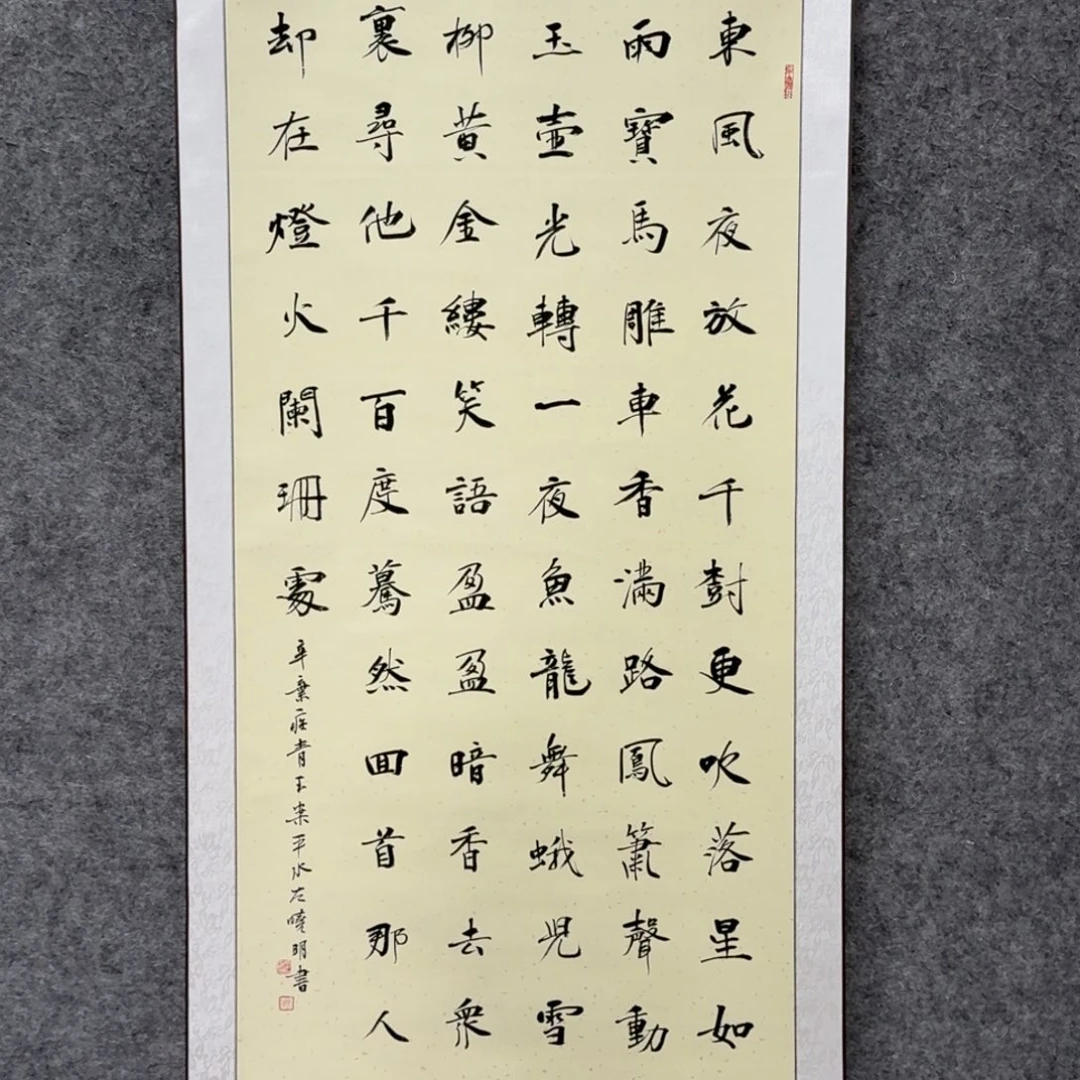 東風夜放花千樹更吹落星如
雨寶馬雕車香滿路鳳簫聲動
玉壺光轉一夜魚龍舞蛾兒雪
柳黄金縷笑語盈盈暗香去衆
裏尋他千百度驀然回首那人
却在燈火闌珊處
辛棄疾青玉案平水左曉明書